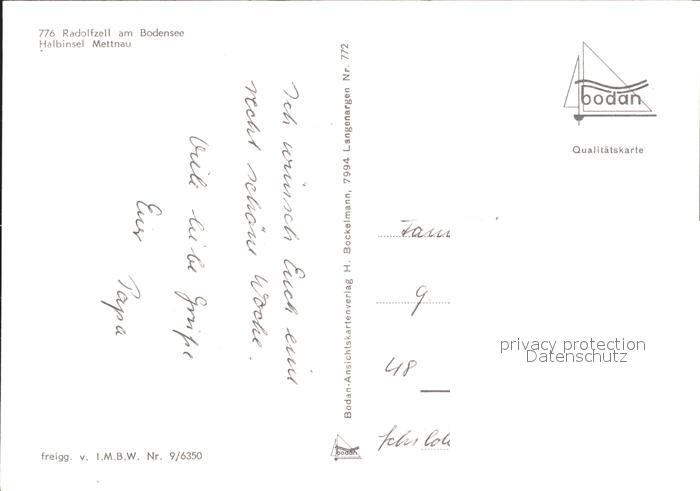 776 Radolfzell am Bodensee
Halbinsel Mettnau
Ich wünsch Euch eine
recht schöne Woche.
Viele liebe Grüße
Euer Papa
Bodan-Ansichtskartenverlag H. Bockelmann, 7994 Langenargen Nr. 772
bodan
Qualitätskarte
Fam
9
48
privacy protection
Datenschutz
bodan
freigg. v. I.M.B.W. Nr. 9/6350